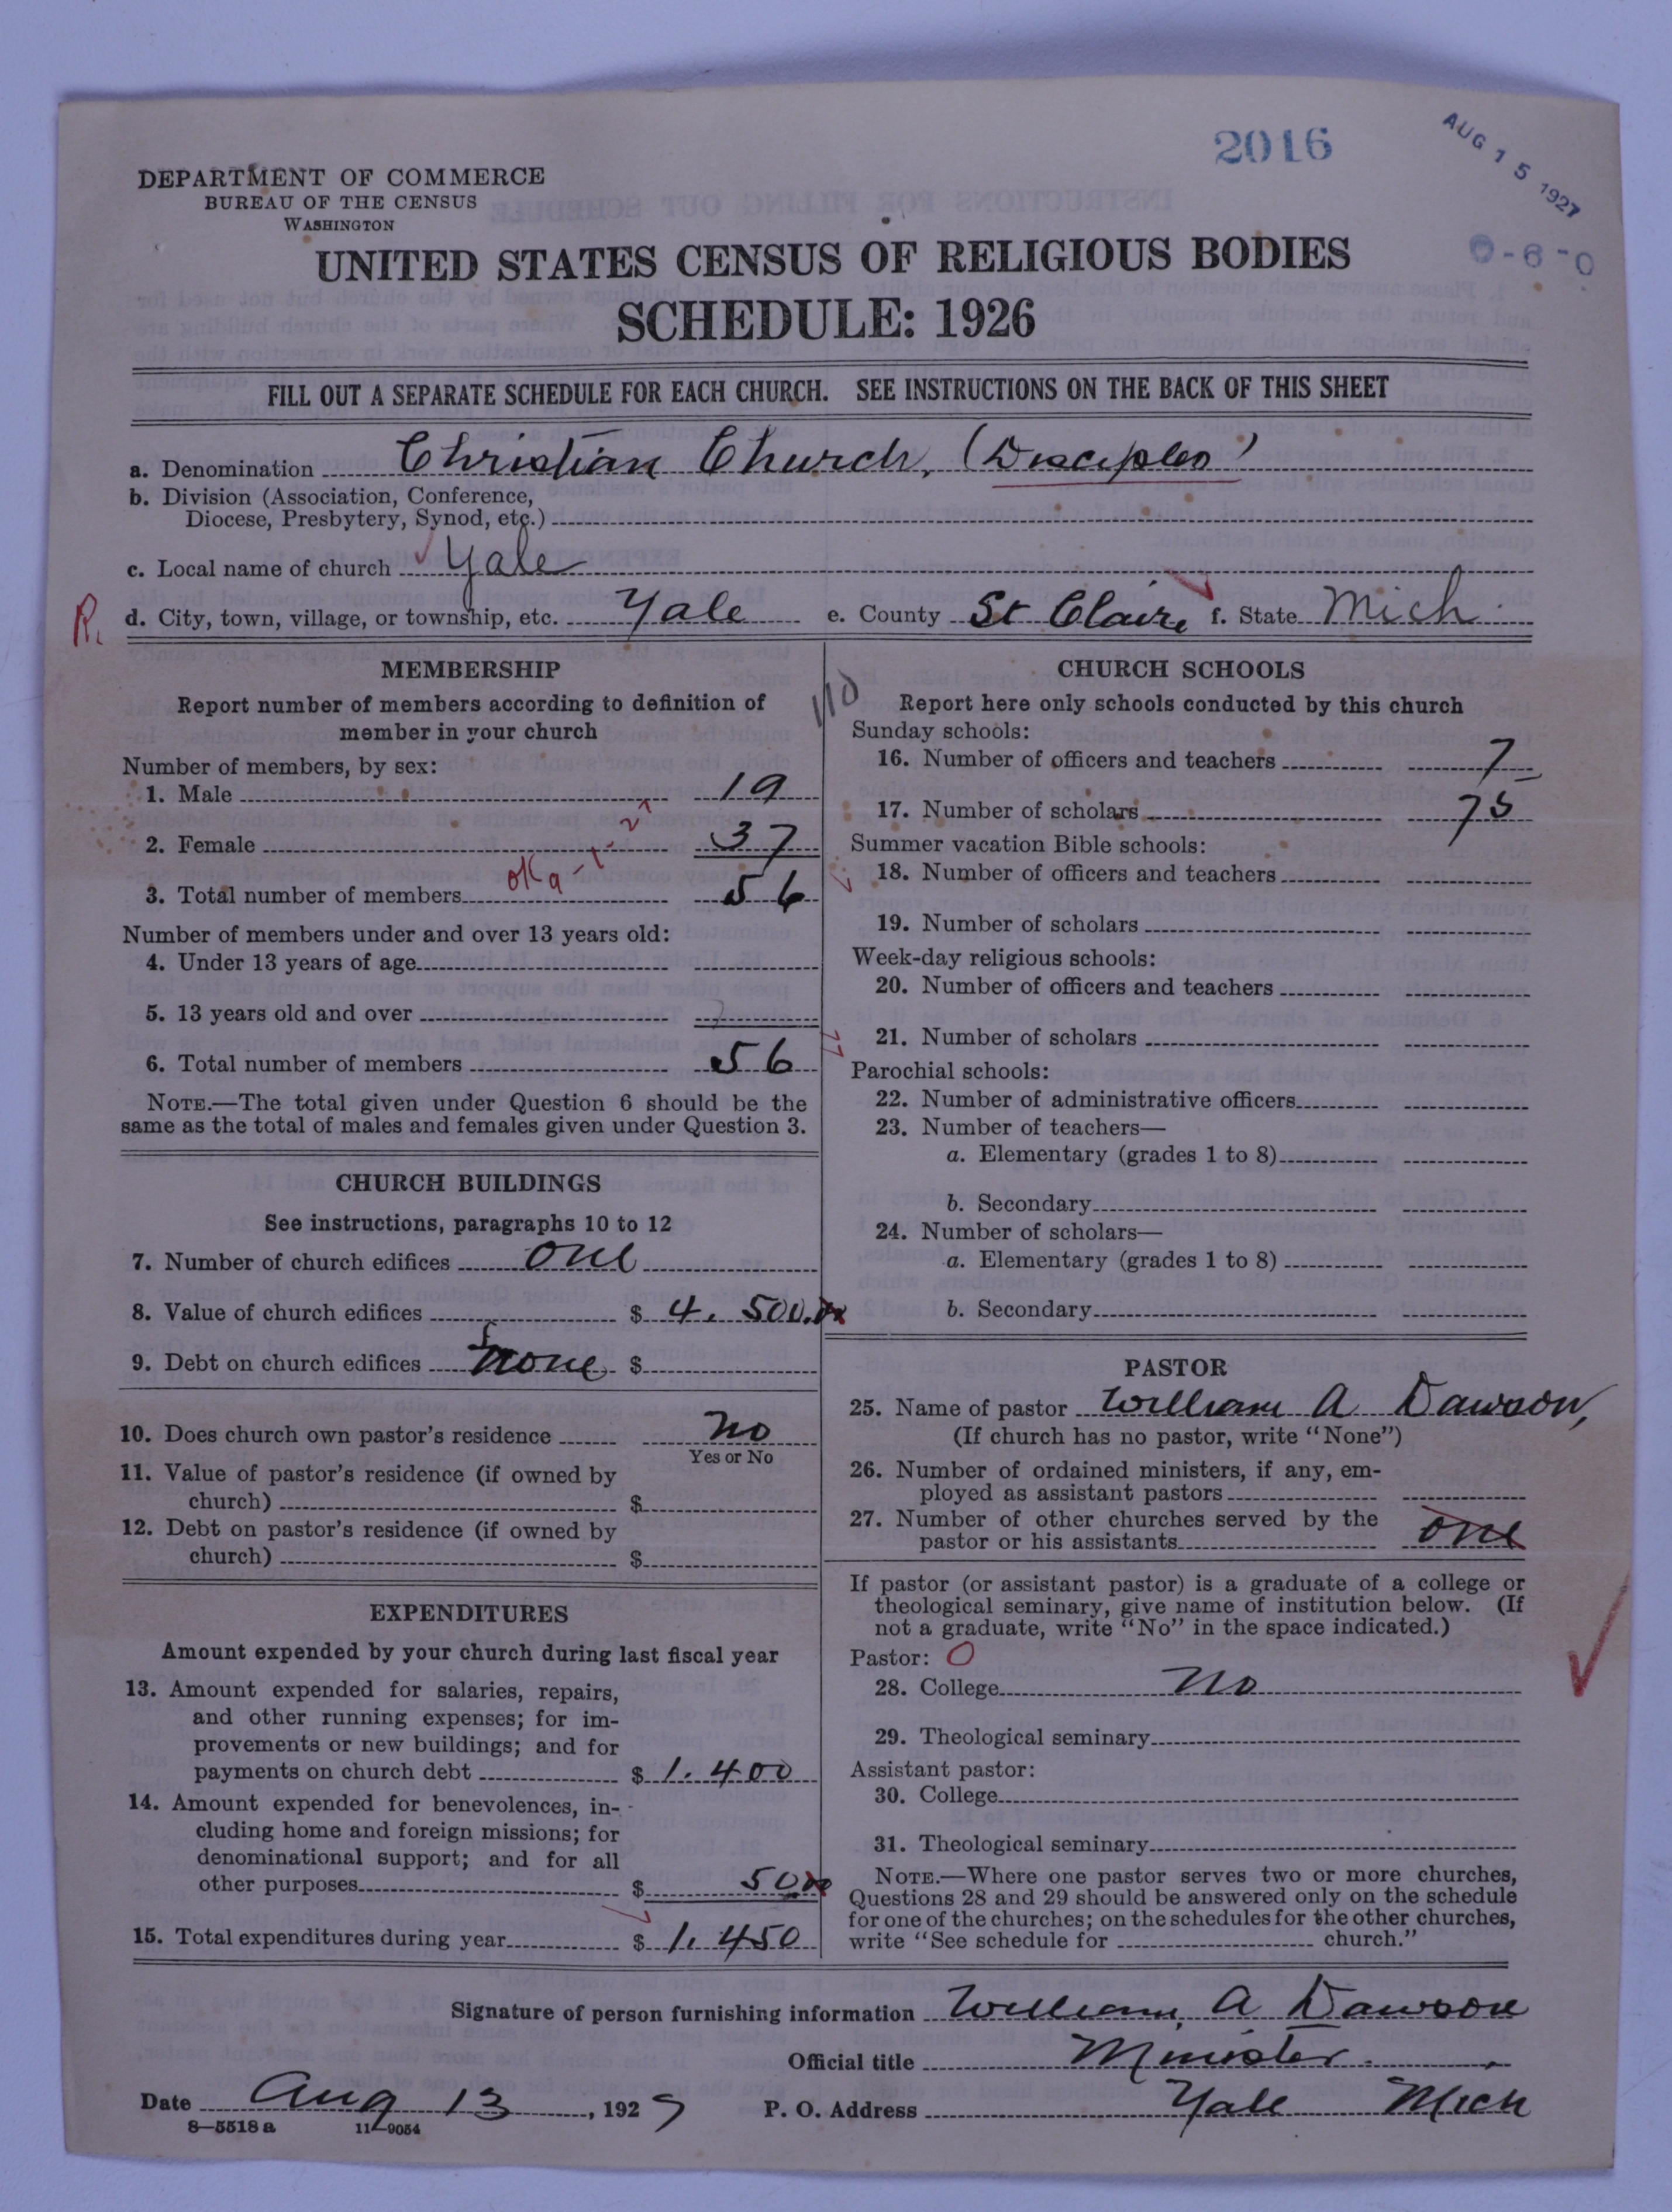 2016
AUG 15 1927
0-6-0
DEPARTMENT OF COMMERCE
BUREAU OF THE CENSUS
WASHINGTON
UNITED STATES CENSUS OF RELIGIOUS BODIES
SCHEDULE: 1926
FILL OUT A SEPARATE SCHEDULE FOR EACH CHURCH. SEE INSTRUCTIONS ON THE BACK OF THIS SHEET
a. Denomination Christian Church, (Disciples)
b. Division (Association, Conference,
Diocese, Presbytery, Synod, etc.)
c. Local name of church Yale
R. d. City, town, village, or township, etc. Yale e. County St Clair, f. State Mich.
MEMBERSHIP
Report number of members according to definition of
member in your church
Number of members, by sex:
1. Male 19
2. Female 37
3. Total number of members 56
Number of members under and over 13 years old:
4. Under 13 years of age
5. 13 years old and over
6. Total number of members 56
NOTE.—The total given under Question 6 should be the
same as the total of males and females given under Question 3.
CHURCH BUILDINGS
See instructions, paragraphs 10 to 12
7. Number of church edifices one
8. Value of church edifices $ 4,500.00
9. Debt on church edifices none $
10. Does church own pastor's residence no
Yes or No
11. Value of pastor's residence (if owned by
church) $
12. Debt on pastor's residence (if owned by
church) $
EXPENDITURES
Amount expended by your church during last fiscal year
13. Amount expended for salaries, repairs,
and other running expenses; for im-
provements or new buildings; and for
payments on church debt $ 1.400
14. Amount expended for benevolences, in-
cluding home and foreign missions; for
denominational support; and for all
other purposes $ 50.00
15. Total expenditures during year $ 1.450
110
CHURCH SCHOOLS
Report here only schools conducted by this church
Sunday schools:
16. Number of officers and teachers 7
17. Number of scholars 75
Summer vacation Bible schools:
18. Number of officers and teachers
19. Number of scholars
Week-day religious schools:
20. Number of officers and teachers
21. Number of scholars
Parochial schools:
22. Number of administrative officers
23. Number of teachers—
a. Elementary (grades 1 to 8)
b. Secondary
24. Number of scholars—
a. Elementary (grades 1 to 8)
b. Secondary
PASTOR
25. Name of pastor William A Dawson,
(If church has no pastor, write "None")
26. Number of ordained ministers, if any, em-
ployed as assistant pastors
27. Number of other churches served by the
pastor or his assistants one
If pastor (or assistant pastor) is a graduate of a college or
theological seminary, give name of institution below. (If
not a graduate, write "No" in the space indicated.)
Pastor: O
28. College no
29. Theological seminary
Assistant pastor:
30. College
31. Theological seminary
NOTE.—Where one pastor serves two or more churches,
Questions 28 and 29 should be answered only on the schedule
for one of the churches; on the schedules for the other churches,
write "See schedule for church."
Signature of person furnishing information William A Dawson
Official title Minister.
Date Aug 13, 1927 P. O. Address Yale Mich
8—5518 a 11—9054